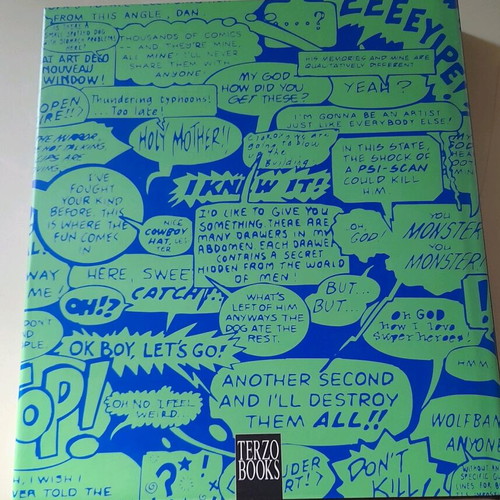 FROM THIS ANGLE, DAN
...?
EEEEEYIPE!
THOUSANDS OF COMICS
-- AND THEY'RE MINE,
ALL MINE! I'LL NEVER
SHARE THEM WITH
ANYONE!
AT ART DEGO
NOUVEAU
WINDOW!
HIS MEMORIES AND MINE ARE
QUALITATIVELY DIFFERENT
MY GOD
HOW DID YOU
GET THESE?
YEAH?
OPEN
FIRE!!
Thundering typhoons!
... Too late!
I'M GONNA BE AN ARTIST
JUST LIKE EVERYBODY ELSE!
HOLY MOTHER!!
going to blow
Building
IN THIS STATE,
THE SHOCK OF
A PSI-SCAN
COULD KILL
HIM.
I KNOW IT!!
I'VE
FOUGHT
YOUR KIND
BEFORE. THIS
IS WHERE THE
FUN COMES
IN
NICE
COWBOY
HAT,
I'D LIKE TO GIVE YOU
SOMETHING. THERE ARE
MANY DRAWERS IN MY
ABDOMEN. EACH DRAWER
CONTAINS A SECRET
HIDDEN FROM THE WORLD
OF MEN!
OH,
GOD!
YOU
MONSTER!
YOU
MONSTER!
WAY
ME!
HERE, SWEET
CATCH!
OH!?
WHAT'S
LEFT OF HIM
ANYWAYS THE
DOG ATE THE
REST.
BUT...
BUT...
OH GOD
how I love
Superheroes!
OK BOY, LET'S GO!
HMM
ANOTHER SECOND
AND I'LL DESTROY
THEM ALL!!
OP!
OH NO I FEEL
WEIRD.
WOLFBAN
ANYONE
TERZO
BOOKS
?*!
LOUDER
DON'T
KILL
H, I WISH I
EVER TOLD THE